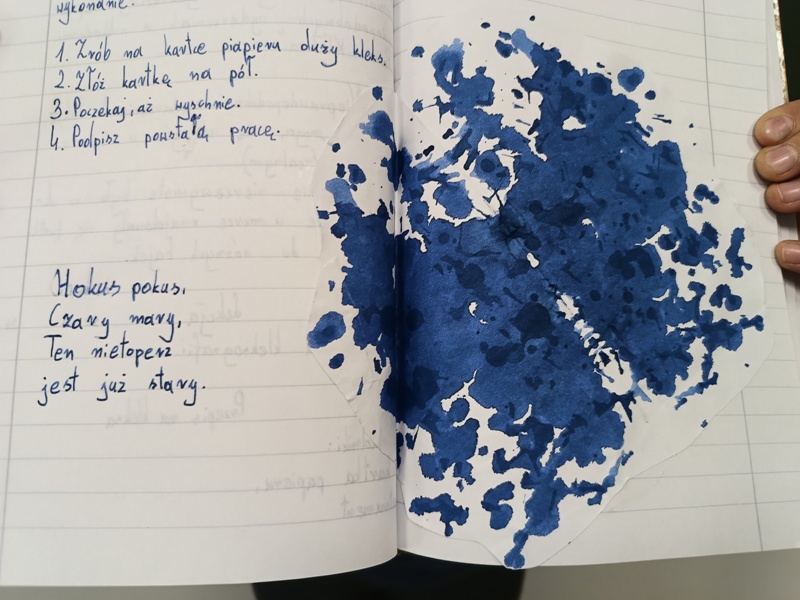 wykonanie.
1. Zrób na kartce piapieru duży kleks.
2. Złóż kartkę na pół.
3. Poczekaj, aż wyschnie.
4. Podpisz powstałą pracę.
Hokus pokus,
Czary mary,
Ten nietoperz
jest już stary.